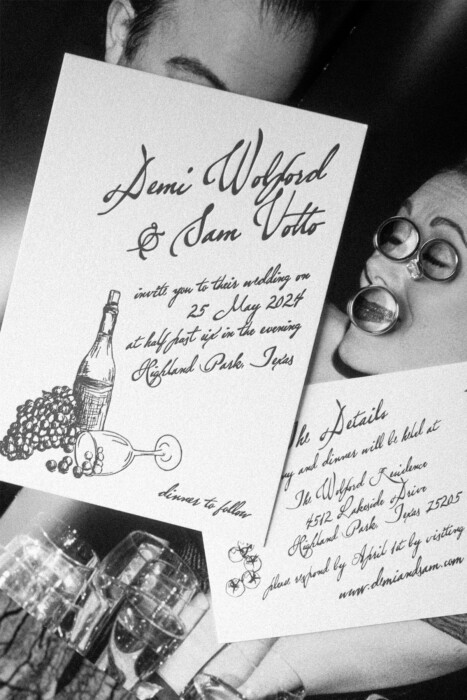 Demi Wolford
& Sam Votto
invite you to their wedding on
25 May 2024
at half past six in the evening
Highland Park, Texas
dinner to follow
The Details
and dinner will be held at
The Wolford Residence
4512 Lakeside Drive
Highland Park, Texas 75205
please respond by April 1st by visiting
www.demiandsam.com